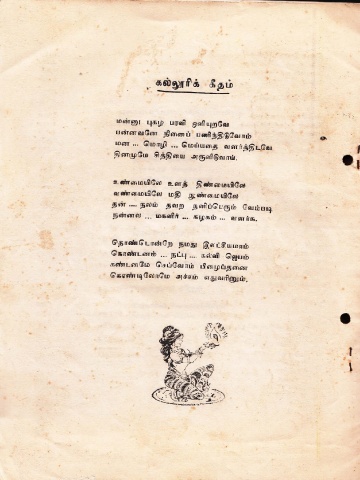 கல்லூரிக் கீதம்
மன்னு புகழ் பரவி ஒளியுறவே
மன்னவனே நினைப் பணிந்திடுவோம்
மன ... மொழி ... மெய்யதை வளர்த்திடவே
தினமுமே சித்தியை அருளிடுவாய்.
உண்மையிலே உளத் திண்மையிலே
வண்மையிலே மதி நுண்மையிலே
தன் ... நலம் தவற தனிப்பெரும் வேம்படி
நன்னல ... மகளிர் ... கழகம் ... வளர்க.
தொண்டொன்றே நமது இலட்சியமாம்
கொண்டனம் ... நட்பு ... கல்வி ஜெபம்
கண்டனமே செய்வோம் பிழைதனை
கொண்டிலோமே அச்சம் எதுவரினும்.